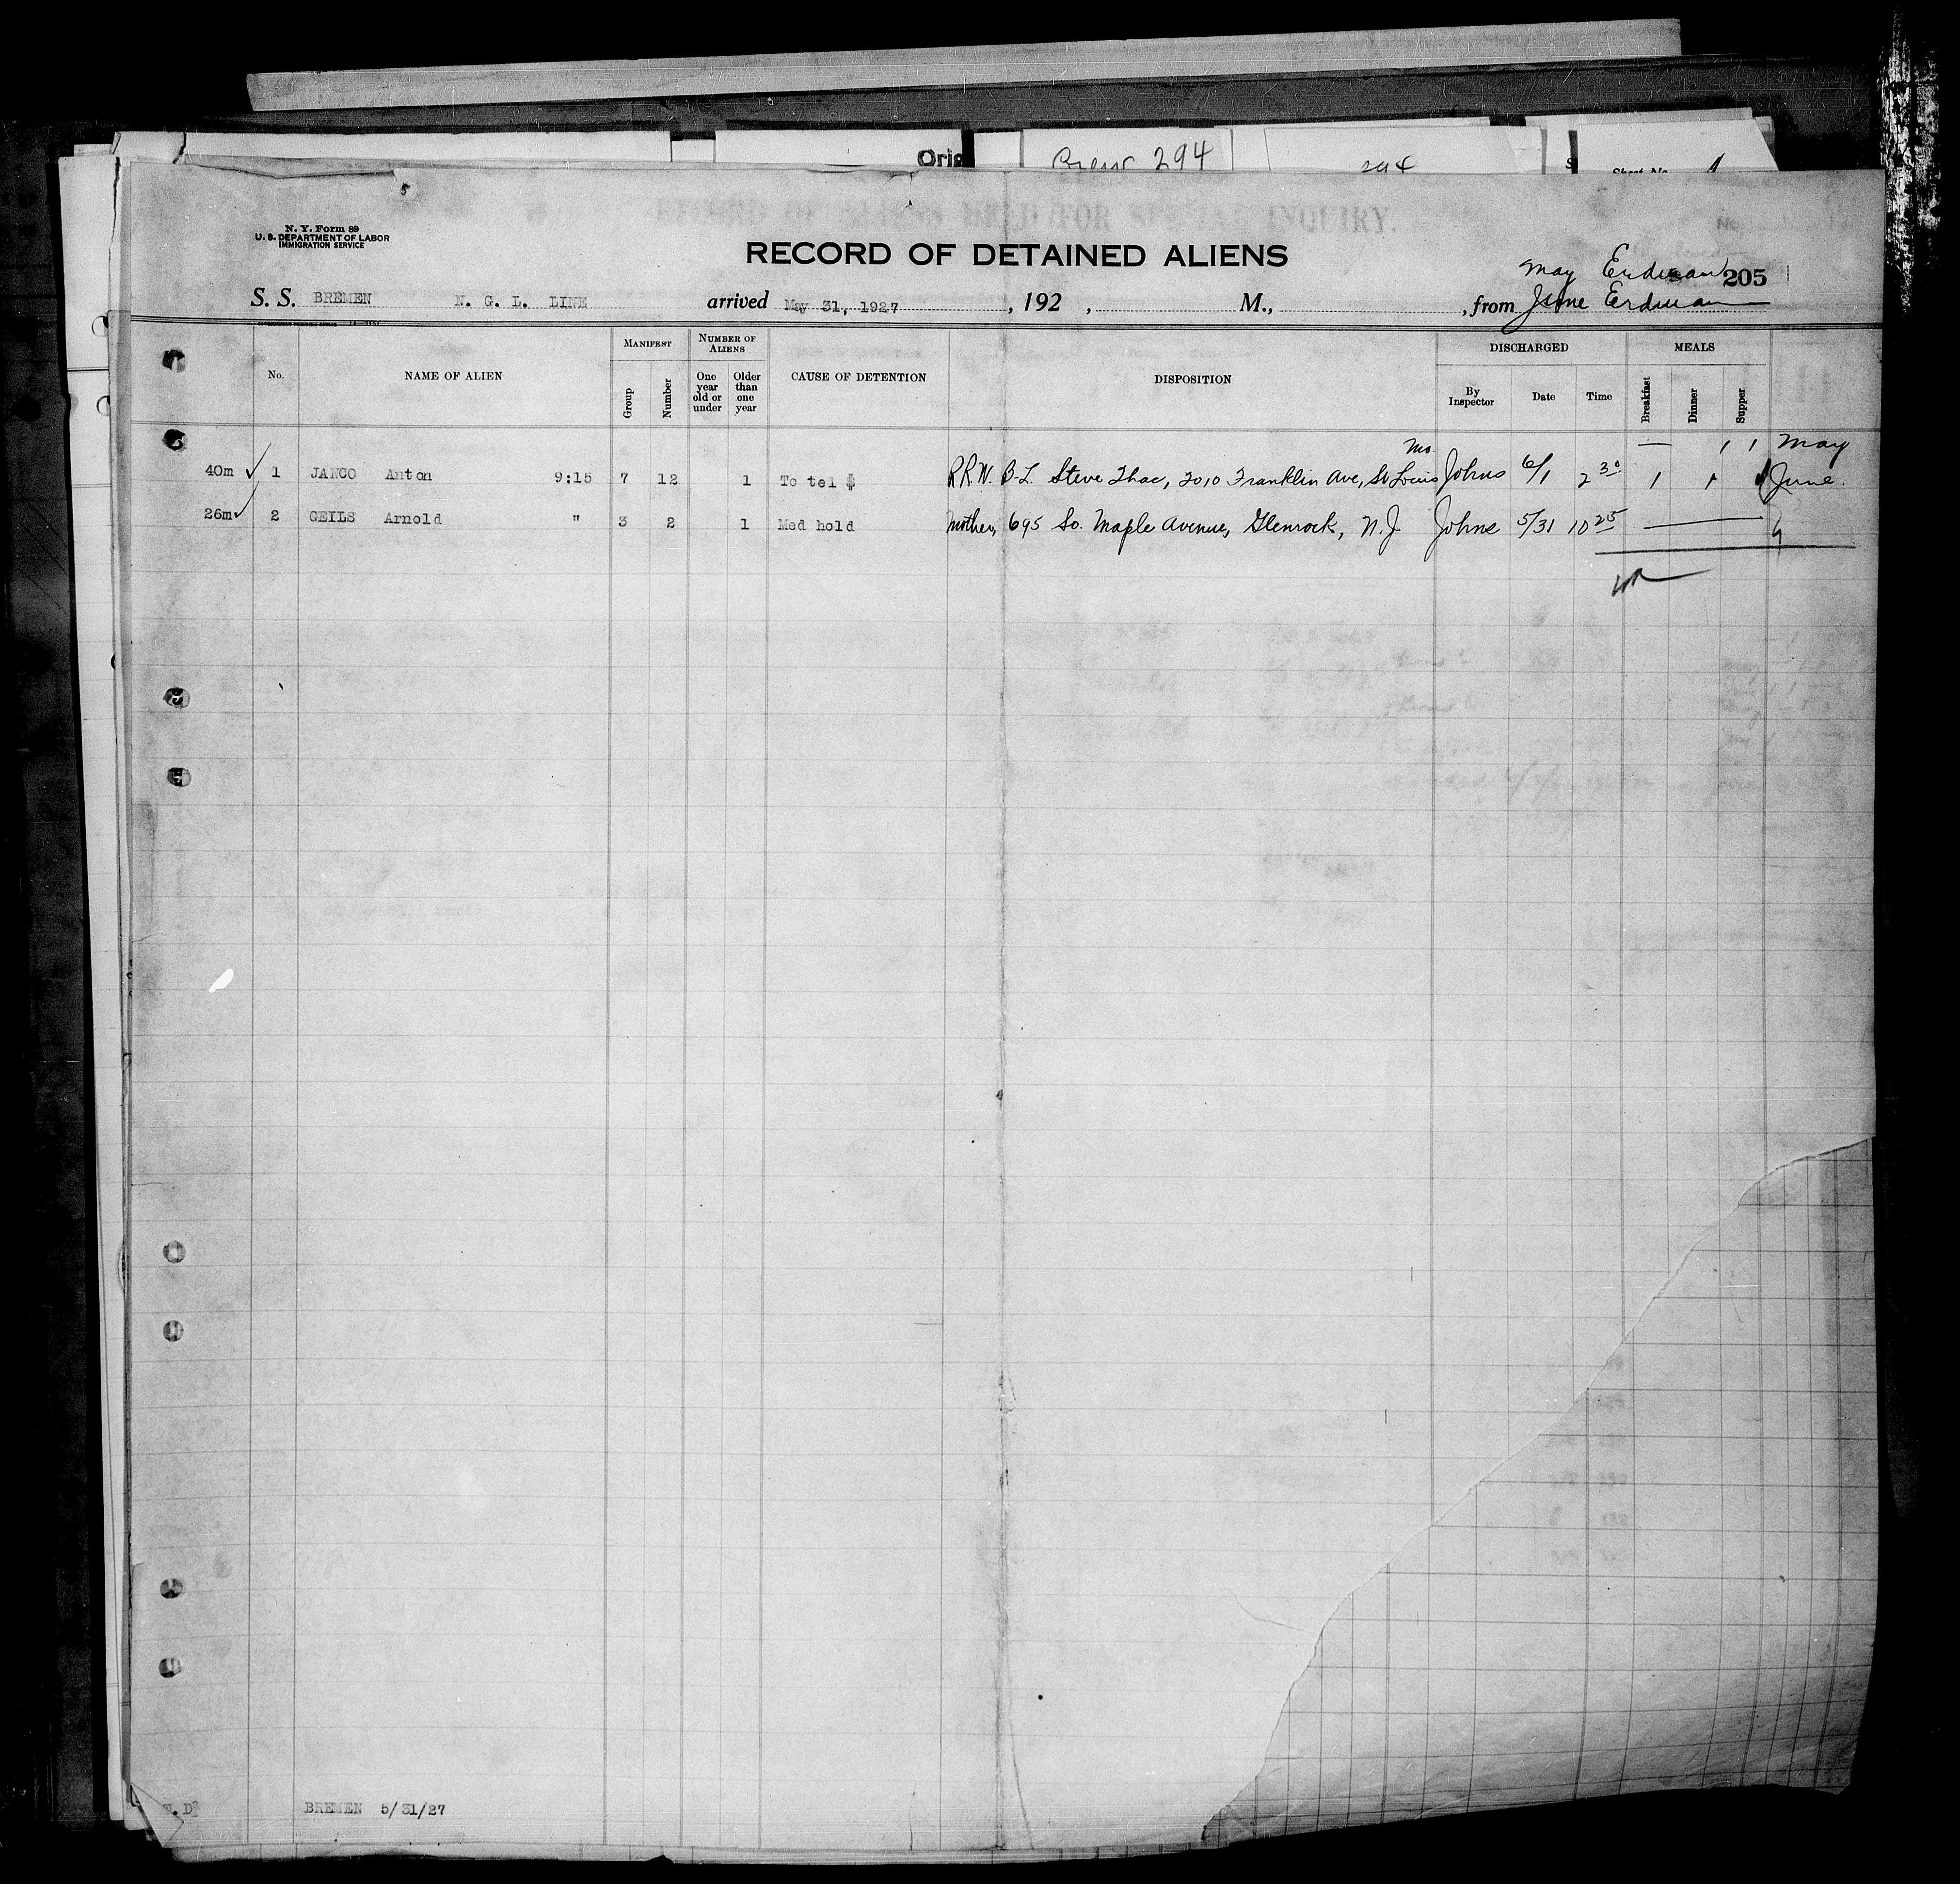 Orig
Crew 294
294
Sheet No. 1
RECORD OF ALIENS HELD FOR SPECIAL INQUIRY.
N. Y. Form 89
U. S. DEPARTMENT OF LABOR
IMMIGRATION SERVICE
RECORD OF DETAINED ALIENS
May Erdman
205
S. S. BREMEN N. G. L. LINE arrived May 31, 1927, 192 , M., , from June Erdman
No.
NAME OF ALIEN
MANIFEST
Group
Number
NUMBER OF ALIENS
One year old or under
Older than one year
CAUSE OF DETENTION
DISPOSITION
DISCHARGED
By Inspector
Date
Time
MEALS
Breakfast
Dinner
Supper
Mo. — 1 1 May
40m ✓ 1 JANCO Anton 9:15 7 12 1 To tel $ R.R.W. B-L. Steve Thac, 2010 Franklin Ave, St Louis Johns 6/1 2 30 1 1 June.
26m ✓ 2 GEILS Arnold " 3 2 1 Med hold Mother, 695 So. Maple Avenue, Glenrock, N.J. Johns 5/31 10 25 —
BREMEN 5/31/27